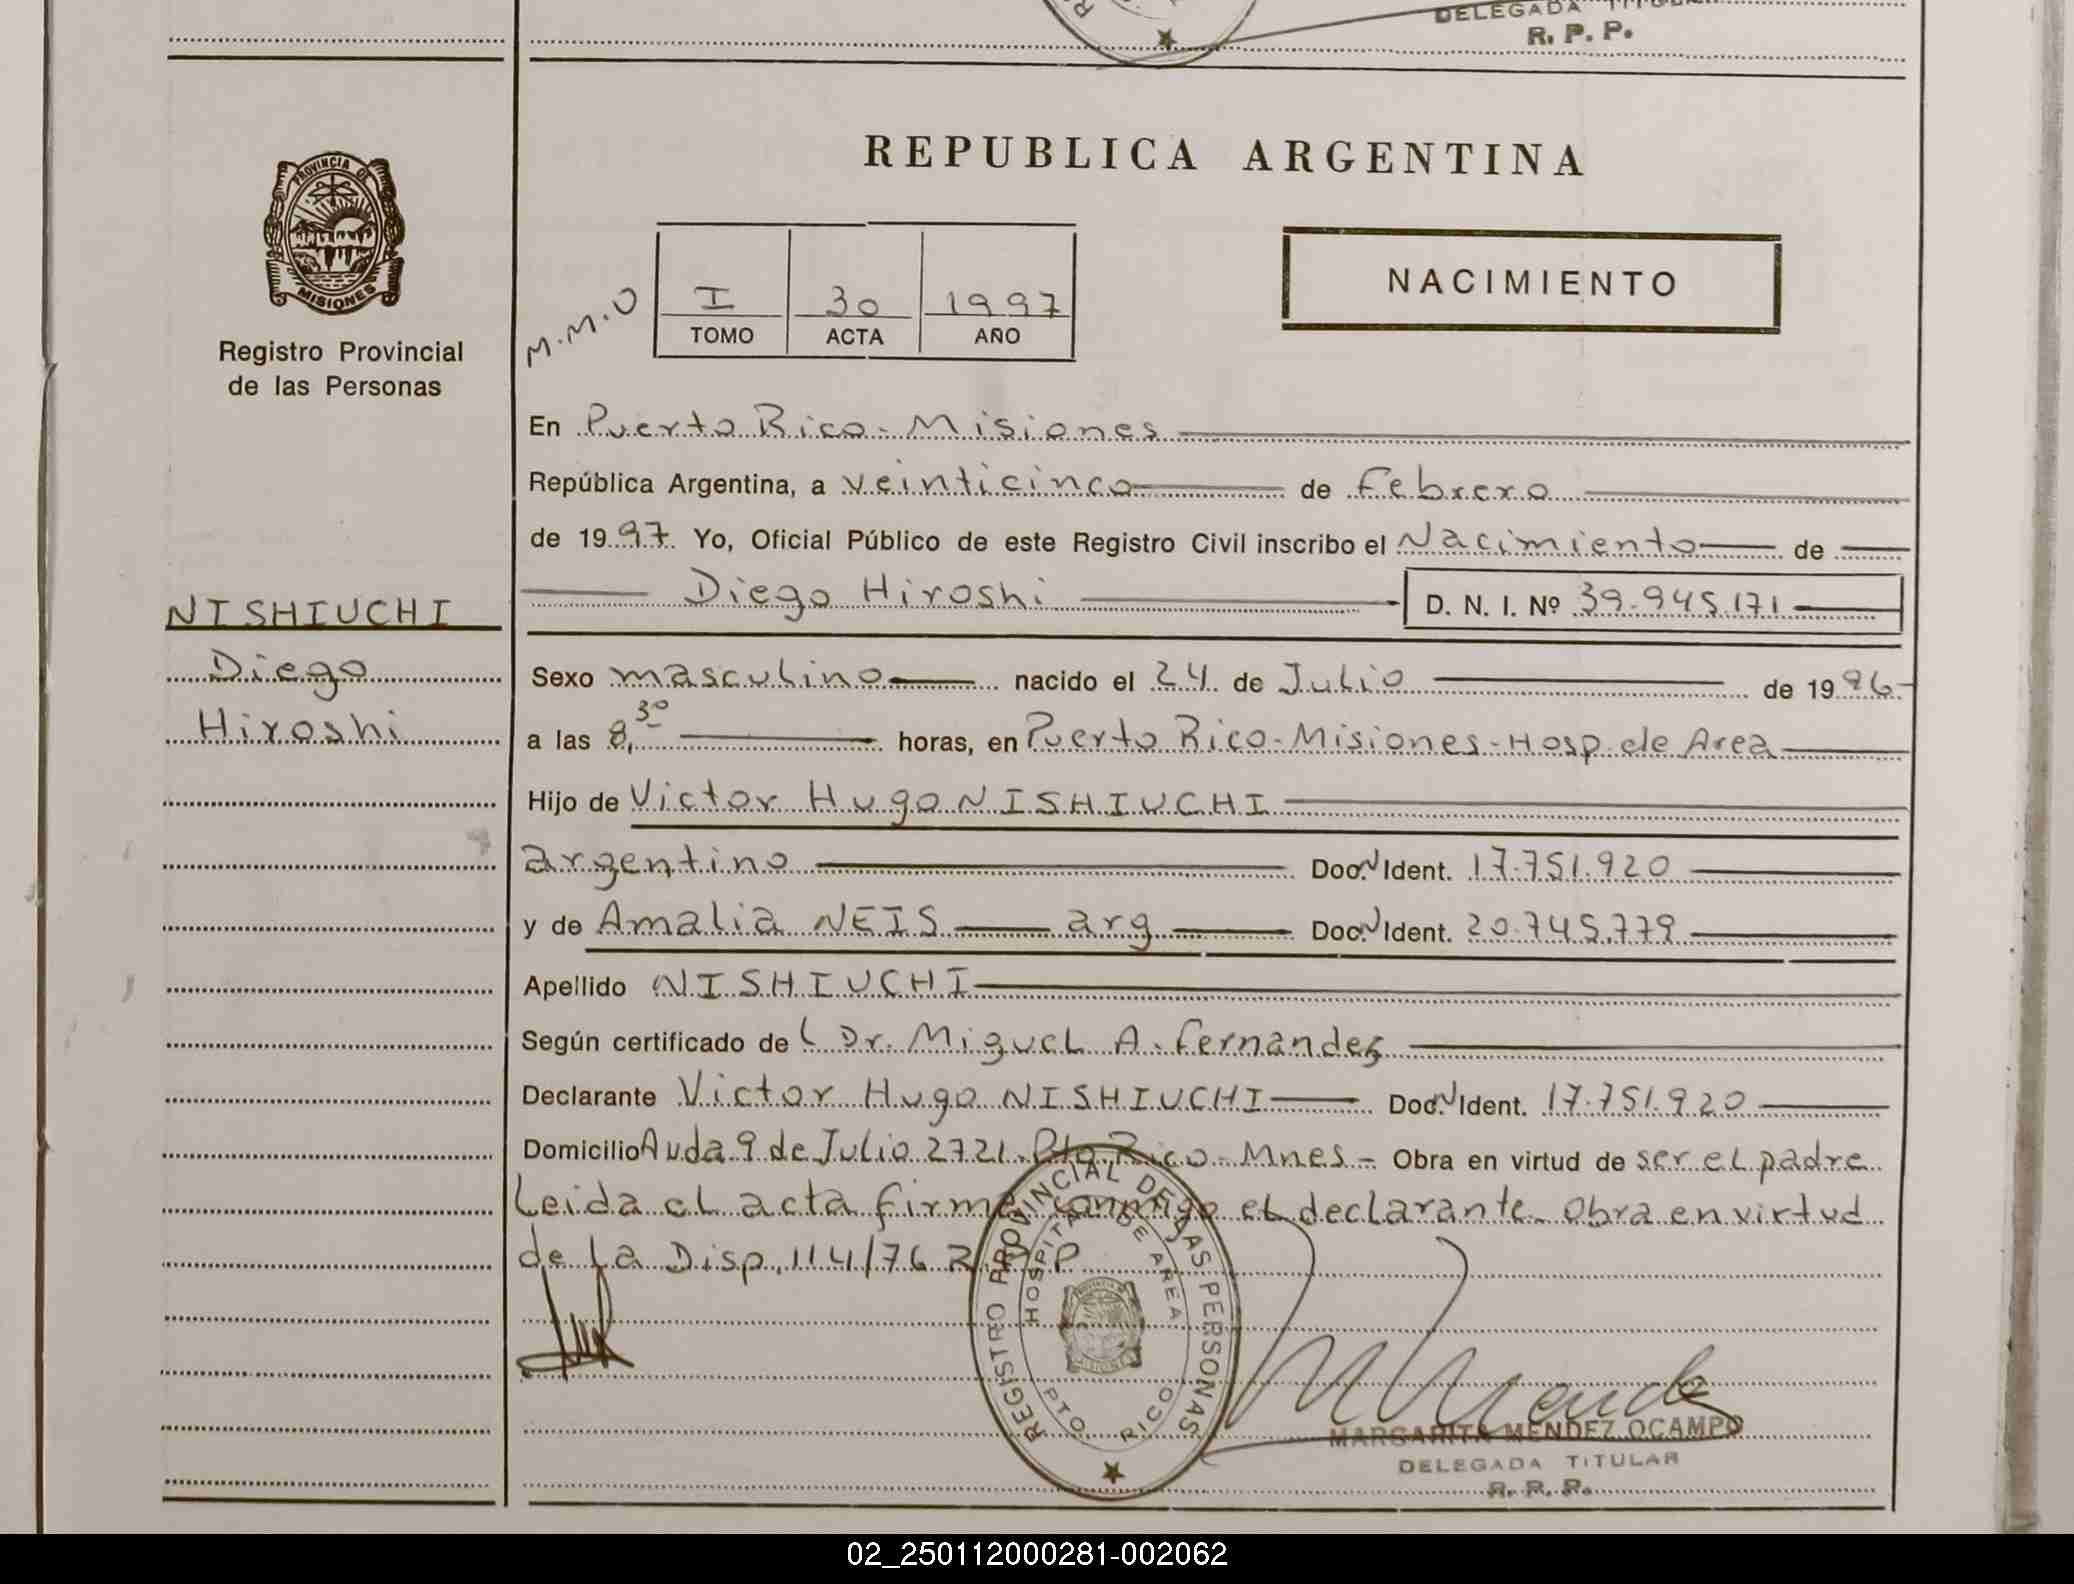 DELEGADA TITULAR
R. P. P.
REPUBLICA ARGENTINA
PROVINCIA DE
MISIONES
Registro Provincial
de las Personas
M.M.O
I 30 1997
TOMO ACTA AÑO
NACIMIENTO
En Puerto Rico - Misiones
República Argentina, a veinticinco de Febrero
de 1997 Yo, Oficial Público de este Registro Civil inscribo el Nacimiento de
Diego Hiroshi D. N. I. Nº 39.945.171
NISHIUCHI
Diego
Hiroshi
Sexo masculino nacido el 24 de Julio de 1996
a las 8,30 horas, en Puerto Rico - Misiones - Hosp. de Area
Hijo de Victor Hugo NISHIUCHI
argentino Doc. N Ident. 17.751.920
y de Amalia NEIS arg Doc. N Ident. 20.745.779
Apellido NISHIUCHI
Según certificado de l Dr. Miguel A. Fernandez
Declarante Victor Hugo NISHIUCHI Doc. N Ident. 17.751.920
Domicilio Avda 9 de Julio 2721. Pto Rico - Mnes - Obra en virtud de ser el padre
Leida el acta firma conmigo el declarante. Obra en virtud
de la Disp. 114/76 R.P.P
REGISTRO PROVINCIAL DE LAS PERSONAS
HOSPITAL DE AREA
PTO RICO
MARGARITA MENDEZ OCAMPO
DELEGADA TITULAR
R. P. P.
02_250112000281-002062